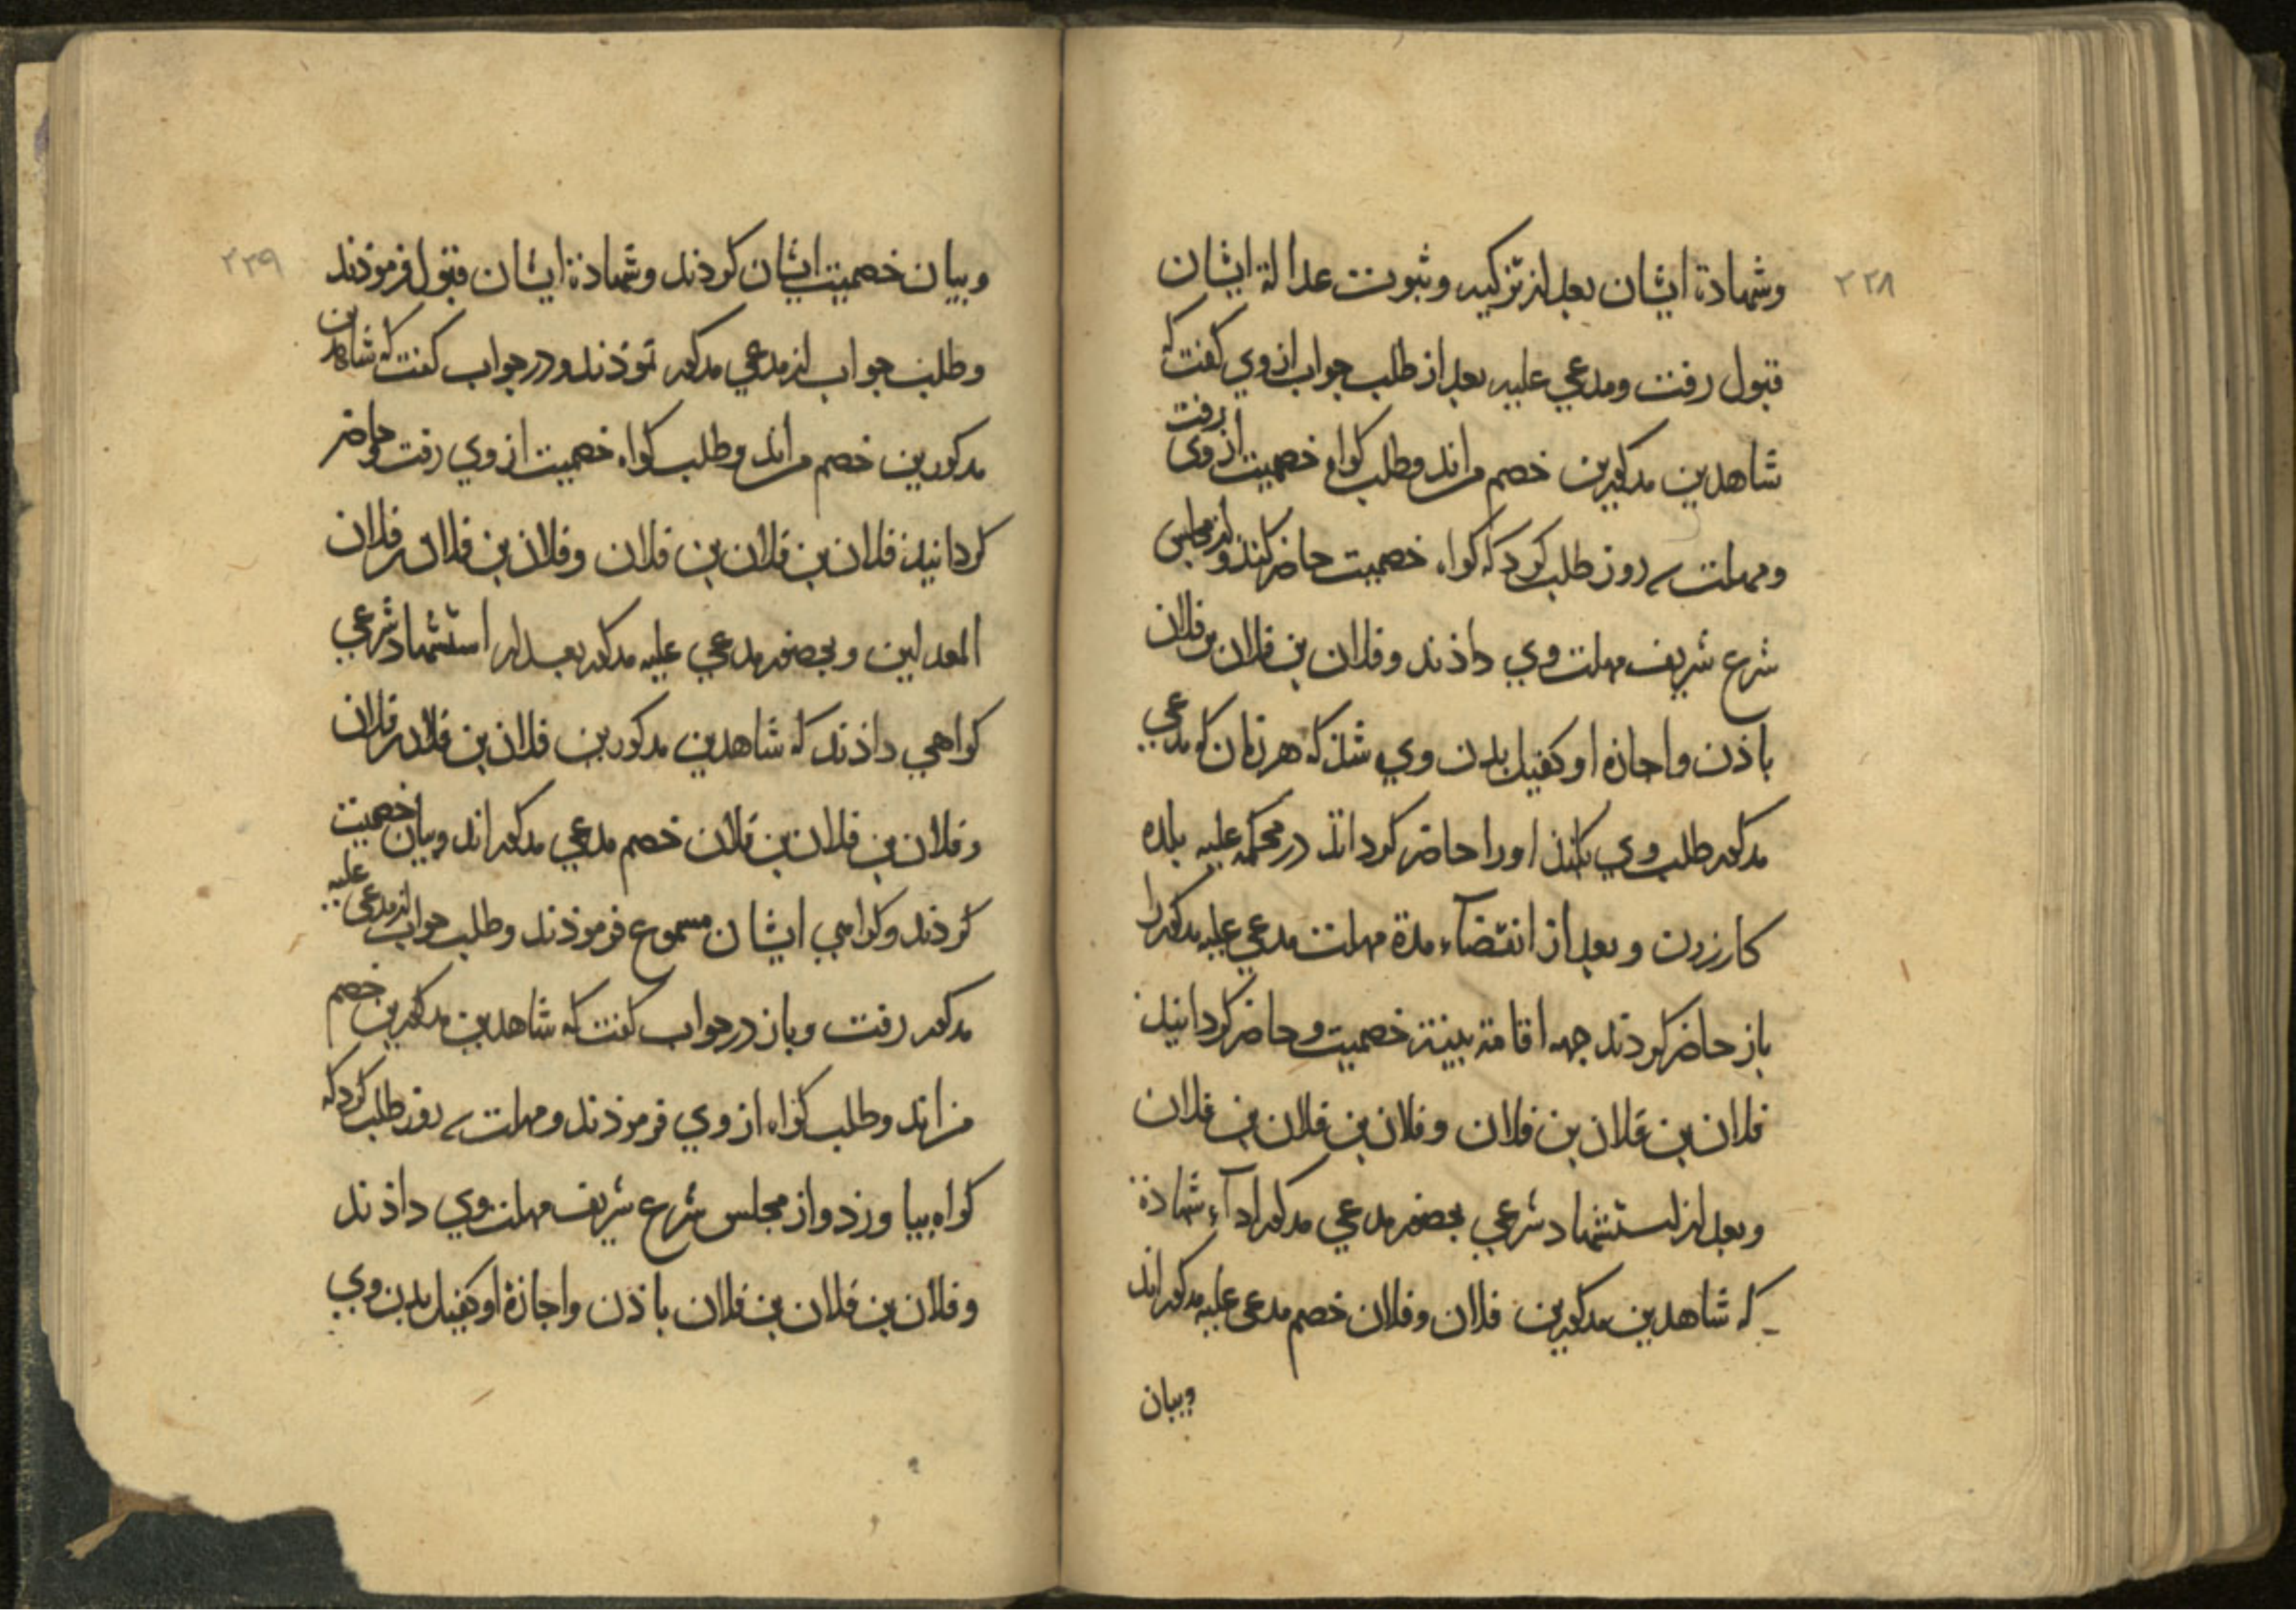 ٢٢٨
وشهادة ایشان بعد از تزکیه وثبوت عدالة ایشان
قبول رفت ومدعي علیه بعد از طلب جواب از وي کفت که
شاهدین مذکورین خصم من اند وطلب کواه خصمیت از وي رفت
ومهلت سه روز طلب کرد که کواه خصمیت حاضر کند واز مجلس
شرع شریف مهلت وي داذند وفلان بن فلان بن فلان
باذن واجازه او کفیل بدن وي شذ که هر زمان که مدعي
مذکور طلب وي بکند اورا حاضر کرداند در محکمه علیه بلده
کازرون وبعد از انقضآء مدة مهلت مدعي علیه مذکور را
باز حاضر کردند جهه اقامة بینة خصمیت وحاضر کردانید
فلان بن فلان بن فلان وفلان بن فلان بن فلان
وبعد از استشهاد شرعي بحضور مدعي مذکور ادآء شهادة
که شاهدین مذکورین فلان وفلان خصم مدعی علیه مذکور اند
وبیان
٢٢٩
وبیان خصمیت ایشان کردند وشهادة ایشان قبول فرموذند
وطلب جواب از مدعي مذکور نموذند ودر جواب کفت که شاهدین
مذکورین خصم من اند وطلب کواه خصمیت از وي رفت وحاضر
کردانید فلان بن فلان بن فلان وفلان بن فلان بن فلان
المعدلین وبحضور مدعي علیه مذکور بعد از استشهاد شرعي
کواهي داذند که شاهدین مذکورین فلان بن فلان بن فلان
وفلان بن فلان بن فلان خصم مدعي مذکور اند وبیان خصمیت
کردند وکواهي ایشان مسموع فرموذند وطلب جواب از مدعي علیه
مذکور رفت وباز در جواب کفت که شاهدین مذکورین خصم
من اند وطلب کواه از وي فرموذند ومهلت سه روز طلب کرد که
کواه بیاورذ واز مجلس شرع شریف مهلت وي داذند
وفلان بن فلان بن فلان باذن واجازة او کفیل بدن وي